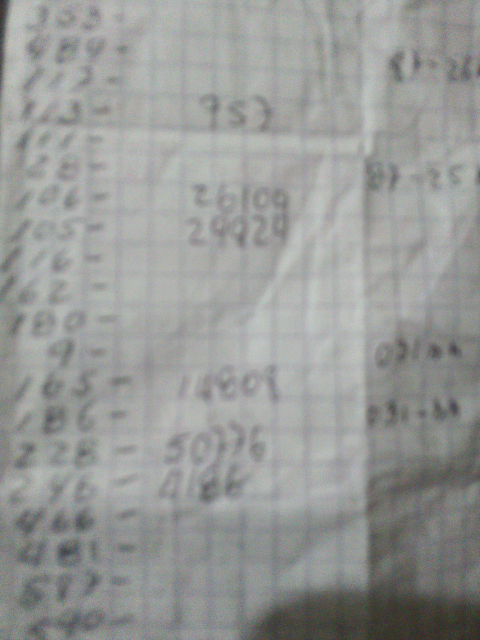 353-
484-
112-
113- 957
111-
68-
106- 26109
105- 29929
116-
162-
180-
9-
165- 14809
186-
228- 50776
246- 4186
466-
481-
587-
540-